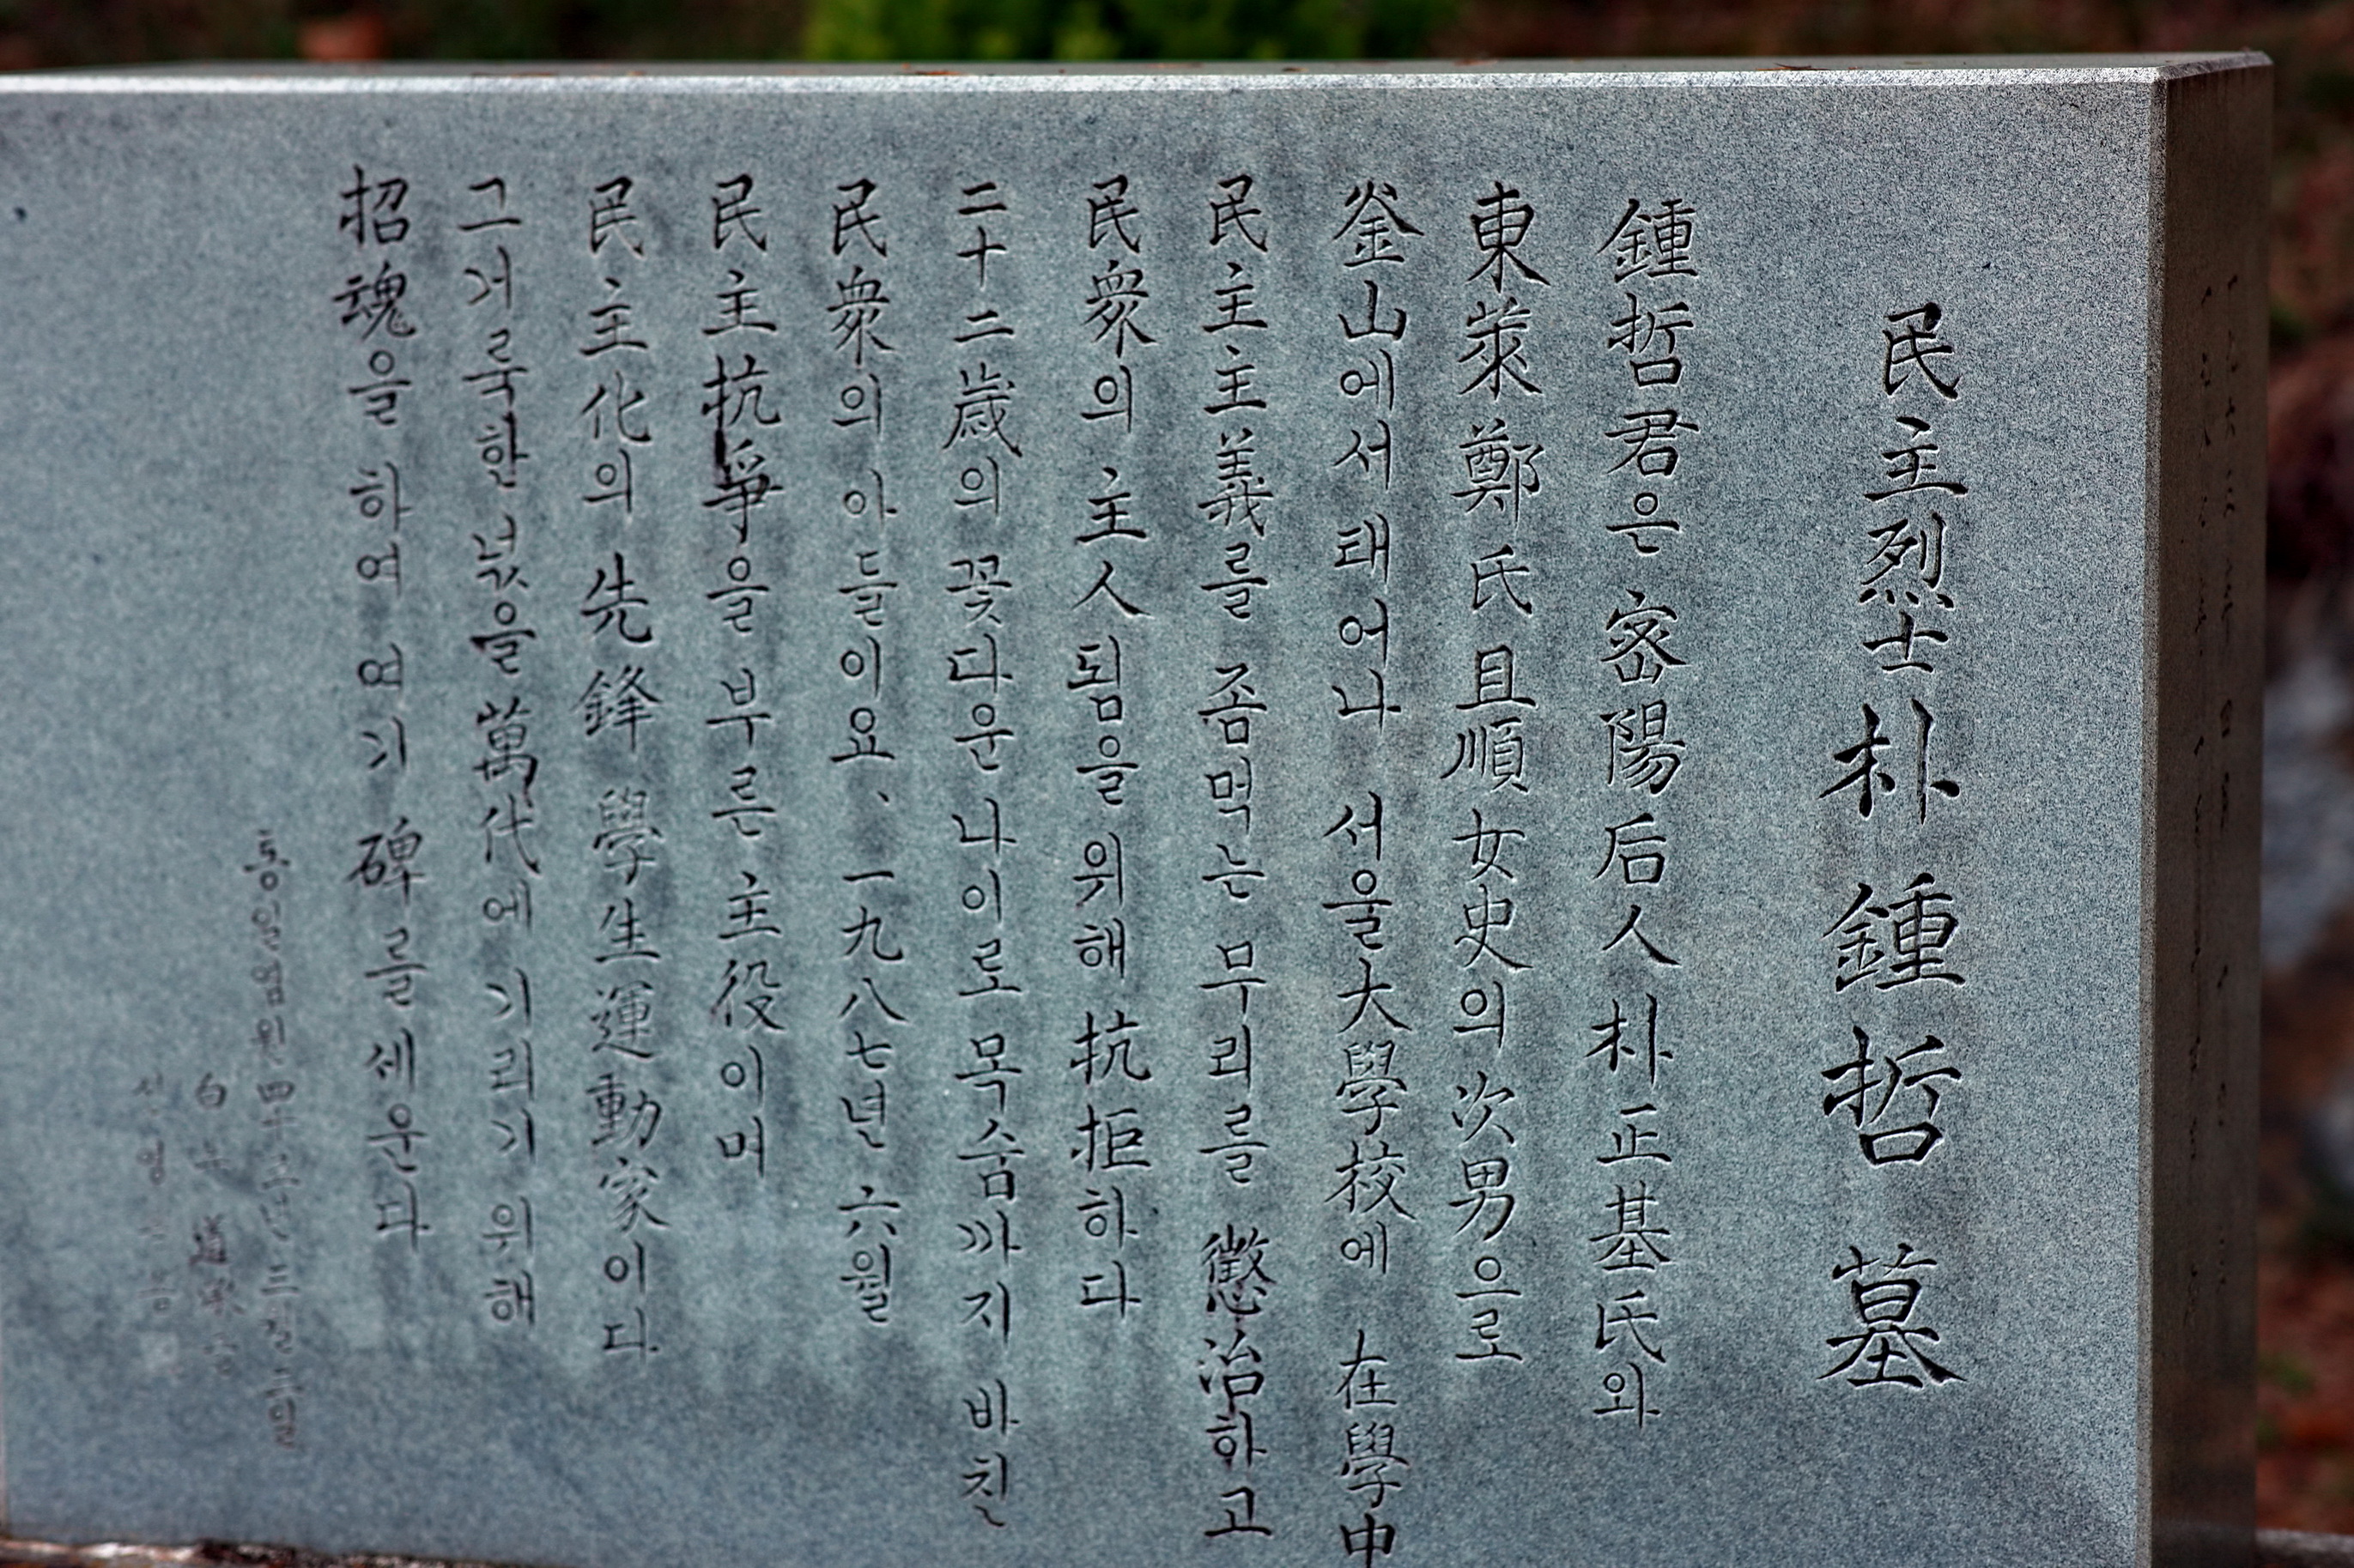 民主烈士 朴鍾哲 墓
鍾哲君은 密陽后人 朴正基氏와
東萊鄭氏 且順女史의 次男으로
釜山에서 태어나 서울大學校에 在學中
民主主義를 좀먹는 무리를 懲治하고
民衆의 主人됨을 위해 抗拒하다
二十二歲의 꽃다운 나이로 목숨까지 바친
民衆의 아들이요、一九八七년 六월
民主抗爭을 부른 主役이며
民主化의 先鋒 學生運動家이다
그 거룩한 넋을 萬代에 기리기 위해
招魂을 하여 여기 碑를 세운다
통일염원
白
신영